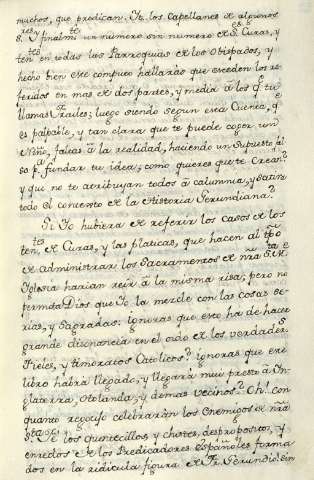 muchos, que predican. It. los Capellanes de algunos
res y finalmte un numero sin numero de Sres Curas, y
ten en todas las Parroquias de los Obispados, y
hecho bien el computo hallarás que exceden los re-
feridos en mas de dos partes, y media à los q. tu
llamas Frailes; luego siendo segun está Cuenta, q.
es palpable, y tan clara que te puede coger un
Niño, faltas à la realidad, haciendo un Supuesto fal
so pa fundar tu idea; como quieres que te Crean?
y que no te atribuyan todos à calumnia, y satira
todo el convento de la Historia Gerundiana?
Si Yo hubiera de referir los casos de los
tentes de Curas, y las platicas, que hacen al tpo
de administrar los Sacramentos de nra Sta M.
Iglesia harian reir à la misma risa; pero no
permita Dios que Yo la mezcle con las cosas se-
rias, y Sagradas: ignoras que esto ha de hacer
grande disonancia en el oido de los verdaderos
Fieles, y timoratos Catolicos? ignoras que ese
libro habrà llegado, y llegarà mui presto à In-
glaterra, Olanda, y demas vecinos? Oh! con
quanto regocijo celebraràn los Enemigos de nra
Sta de los quentecillos y chistes, despropositos, y
enredos de los Predicadores Españoles forma
dos en la ridicula figura de Fr. Gerundio! Sin